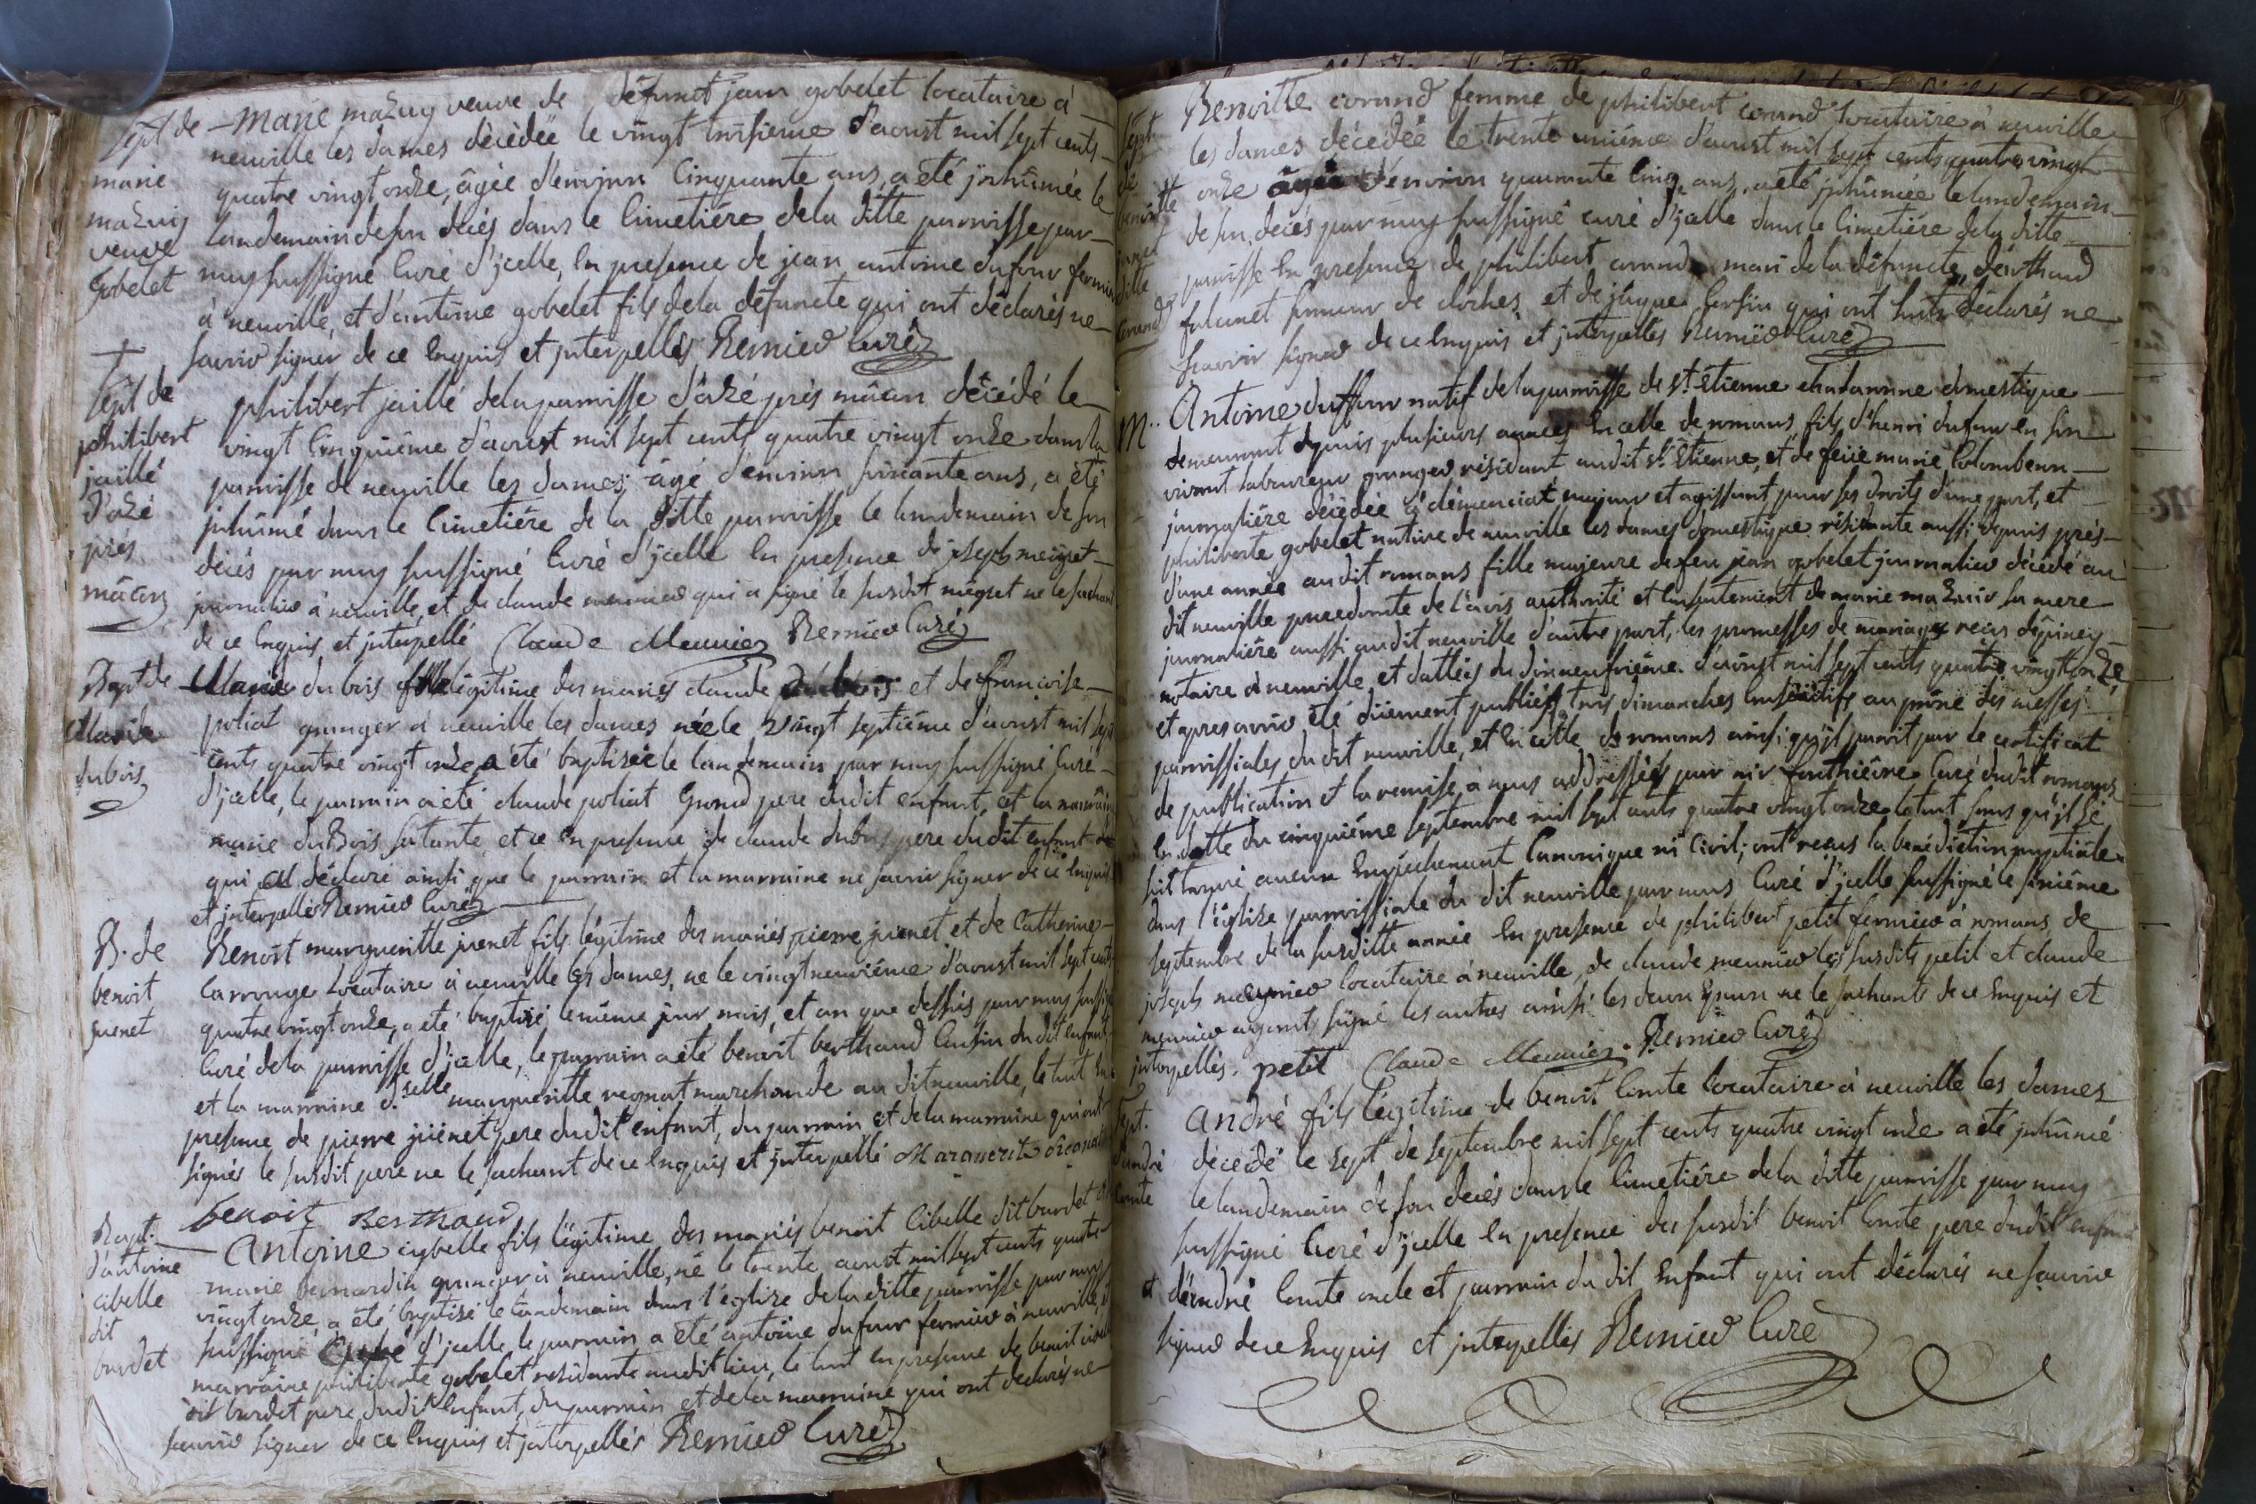 Sept de
marie
mazuy
veuve
gobelet
Marie mazuy veuve de défunct jean gobelet locataire à
neuville les dames décédée le vingt troisieme d'aoust mil sept cents
quatre vingt onze, âgée d'environ Cinquante ans, a été jnhûmée le
landemain de son decés dans le Cimetiére de la ditte parroisse par
nuy soussigné Curé d'jcelle, en presence de jean antoine dufour fermier
à neuville, et d'antoine gobelet fils de la défuncte qui ont déclarés ne
savoir signer de ce Enquis et jnterpellés Remier Curé
Sept de
philibert
jaillé
d'azé
prés
mâcon
philibert jaillé de la parroisse d'azé prés mâcon décédé le
vingt Cinquiéme d'aoust mil sept cents quatre vingt onze dans la
parroisse de neuville les dames, âgé d'environ soixante ans, a été
jnhûmé dans le Cimetiére de la ditte parroisse le landemain de son
décés par nuy soussigné Curé d'jcelle en presence de joseph
journalier à neuville, et de claude meunier qui a signé le susdit ne le sachant
de ce Enquis et jnterpellé Claude Meunier Remier Curé
Bapt de
Marie
dubois
Marie du bois fille légitime des mariés claude dubois et de francoise
poliat granger à neuville les dames née le vingt septiéme d'aoust mil sept
cents quatre vingt onze a été baptisée le landemain par nuy soussigné Curé
d'jcelle, le parrain a été claude poliat Grand pere dudit enfant, et la marraine
marie du Bois sa tante, et ce en presence de claude dubois pere du dit enfant
qui a déclaré ainsi que le parrain et la marraine ne savoir signer de ce Enquis
et jnterpellés Remier Curé
B. de
benoit
juenet
Benoit margueritte juenet fils légitime des mariés pierre juenet et de Catherine
Carronge locataire à neuville les dames, né le vingt neuviéme d'aoust mil sept cents
quatre vingt onze, a été baptisé le même jour mois, et an que dessus par nuy soussigné
Curé de la parroisse d'jcelle, le parrain a été benoit berthaud Cousin du dit enfant
et la marraine d.selle margueritte regnat marchande au dit neuville, le tout en
presence de pierre juenet pere du dit enfant, du parrain et de la marraine qui ont
signés le susdit pere ne le sachant de ce Enquis et jnterpellé Marguerite
benoit Berthaud
Bapt.
d'antoine
cibelle
dit
burdet
Antoine cybelle fils légitime des mariés benoit Cibelle dit burdet et
marie bernardin granger à neuville, né le trente aoust mil sept cents quatre
vingt onze, a été baptisé le landemain dans l'église de la ditte parroisse par nuy
soussigné Curé d'jcelle le parrain a été antoine dufour fermier à neuville, et
marraine philiberte gobelet residante au dit lieu, le tout en presence de benoit cibelle
dit burdet pere du dit Enfant, du parrain et de la marraine qui ont declarés ne
savoir signer de ce Enquis et jnterpellés Remier Curé
Benoitte corand femme de philibert corand locataire à neuville
les dames décédée le trente uniéme d'aoust mil sept cents quatre vingt
onze agée d'environ quarante Cinq ans, a été jnhûmée le landemain
de son decés par nuy soussigné curé d'jcelle dans le Cimetiére de la ditte
parroisse en presence de philibert corand mari de la défuncte,
sonneur de cloches, et de jaque qui ont tous déclarés ne
scavoir signer de ce Enquis et jnterpellés Remier Curé
M.
Antoine duffour natif de la parroisse de st. étienne chalaronne domestique
demeurant depuis plusieurs années En celle de romans fils d'henri dufour En son
vivant laboureur granger résidant audit st. Etienne, et de feüe marie Colombenn
journaliére décédée à clémenciat majeur et agissant pour ses droits d'une part, et
philiberte gobelet native de neuville les dames domestique résidante aussi depuis prés
d'une année au dit romans fille majeure de feu jean gobelet journalier décédé au
dit neuville procedante de l'avis authorité et Consentement de marie mazuir sa mere
journaliére aussi audit neuville d'autre part, les promesses de mariage recus
notaire à neuville et dattées du dixneufviéme d'aoust mil sept cents quatre vingt onze,
et apres avoir été düement publiées trois dimanches Consécutifs au prône des messes
parroissiales du dit neuville, et En celle de romans ainsi qu'jl paroit par le certificat
de publication et la remise, à nous addressées par mr fonthiévre Curé du dit romans
En datte du cinquiéme septembre mil sept cents quatre vingt onze le tout sans qu'jl se
soit trouvé aucun Empêchement Canonique ni Civil; ont recus la benédiction nuptiale
dans l'église parroissiale du dit neuville par nous Curé d'jcelle soussigné le sixiéme
septembre de la susditte année En presence de philibert petit fermier à romans, de
joseph locataire à neuville, de claude meunier les susdits petit et claude
meunier ayants signé les autres ainsi les deux Epoux ne le sachants de ce Enquis et
jnterpellés. petit Claude Meunier. Remier Curé
Sept.
d'andré
Comte
André fils légitime de benoit Comte locataire à neuville les dames
décédé le sept de septembre mil sept cents quatre vingt onze a été jnhûmé
le landemain de son decés dans le Cimetiére de la ditte parroisse par nuy
soussigné Curé d'jcelle En presence du susdit benoit Comte pere du dit enfant
et d'andré Comte oncle et parrain du dit Enfant qui ont déclarés ne savoir
signer de ce Enquis et jnterpellés Remier Curé